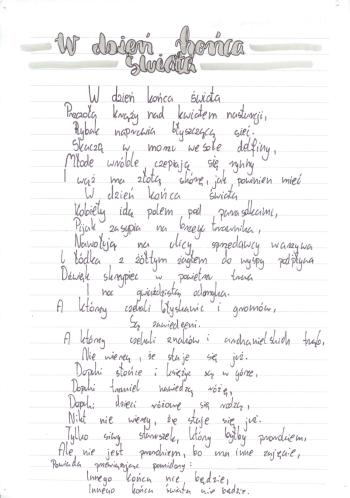 W dzień końca
świata
W dzień końca świata
Pszczoła krąży nad kwiatem nasturcji,
Rybak naprawia błyszczącą sieć.
Skaczą w morzu wesołe delfiny,
Młode wróble czepiają się rynny
I wąż ma złotą skórę, jak powinien mieć
W dzień końca świata
Kobiety idą polem pod parasolkami,
Pijak zasypia na brzegu trawnika,
Nawołują na ulicy sprzedawcy warzywa
I łódka z żółtym żaglem do wyspy podpływa
Dźwięk skrzypiec w powietrzu trwa
I noc gwiaździstą odmyka.
A którzy czekali błyskawic i gromów,
Są zawiedzeni.
A którzy czekali znaków i archanielskich trąb,
Nie wierzą, że staje się już.
Dopóki słońce i księżyc są w górze,
Dopóki trzmiel nawiedza różę,
Dopóki dzieci różowe się rodzą,
Nikt nie wierzy, że staje się już.
Tylko siwy staruszek, który byłby prorokiem,
Ale nie jest prorokiem, bo ma inne zajęcie,
Powiada przewiązując pomidory:
Innego końca nie będzie,
Innego końca świata nie będzie.